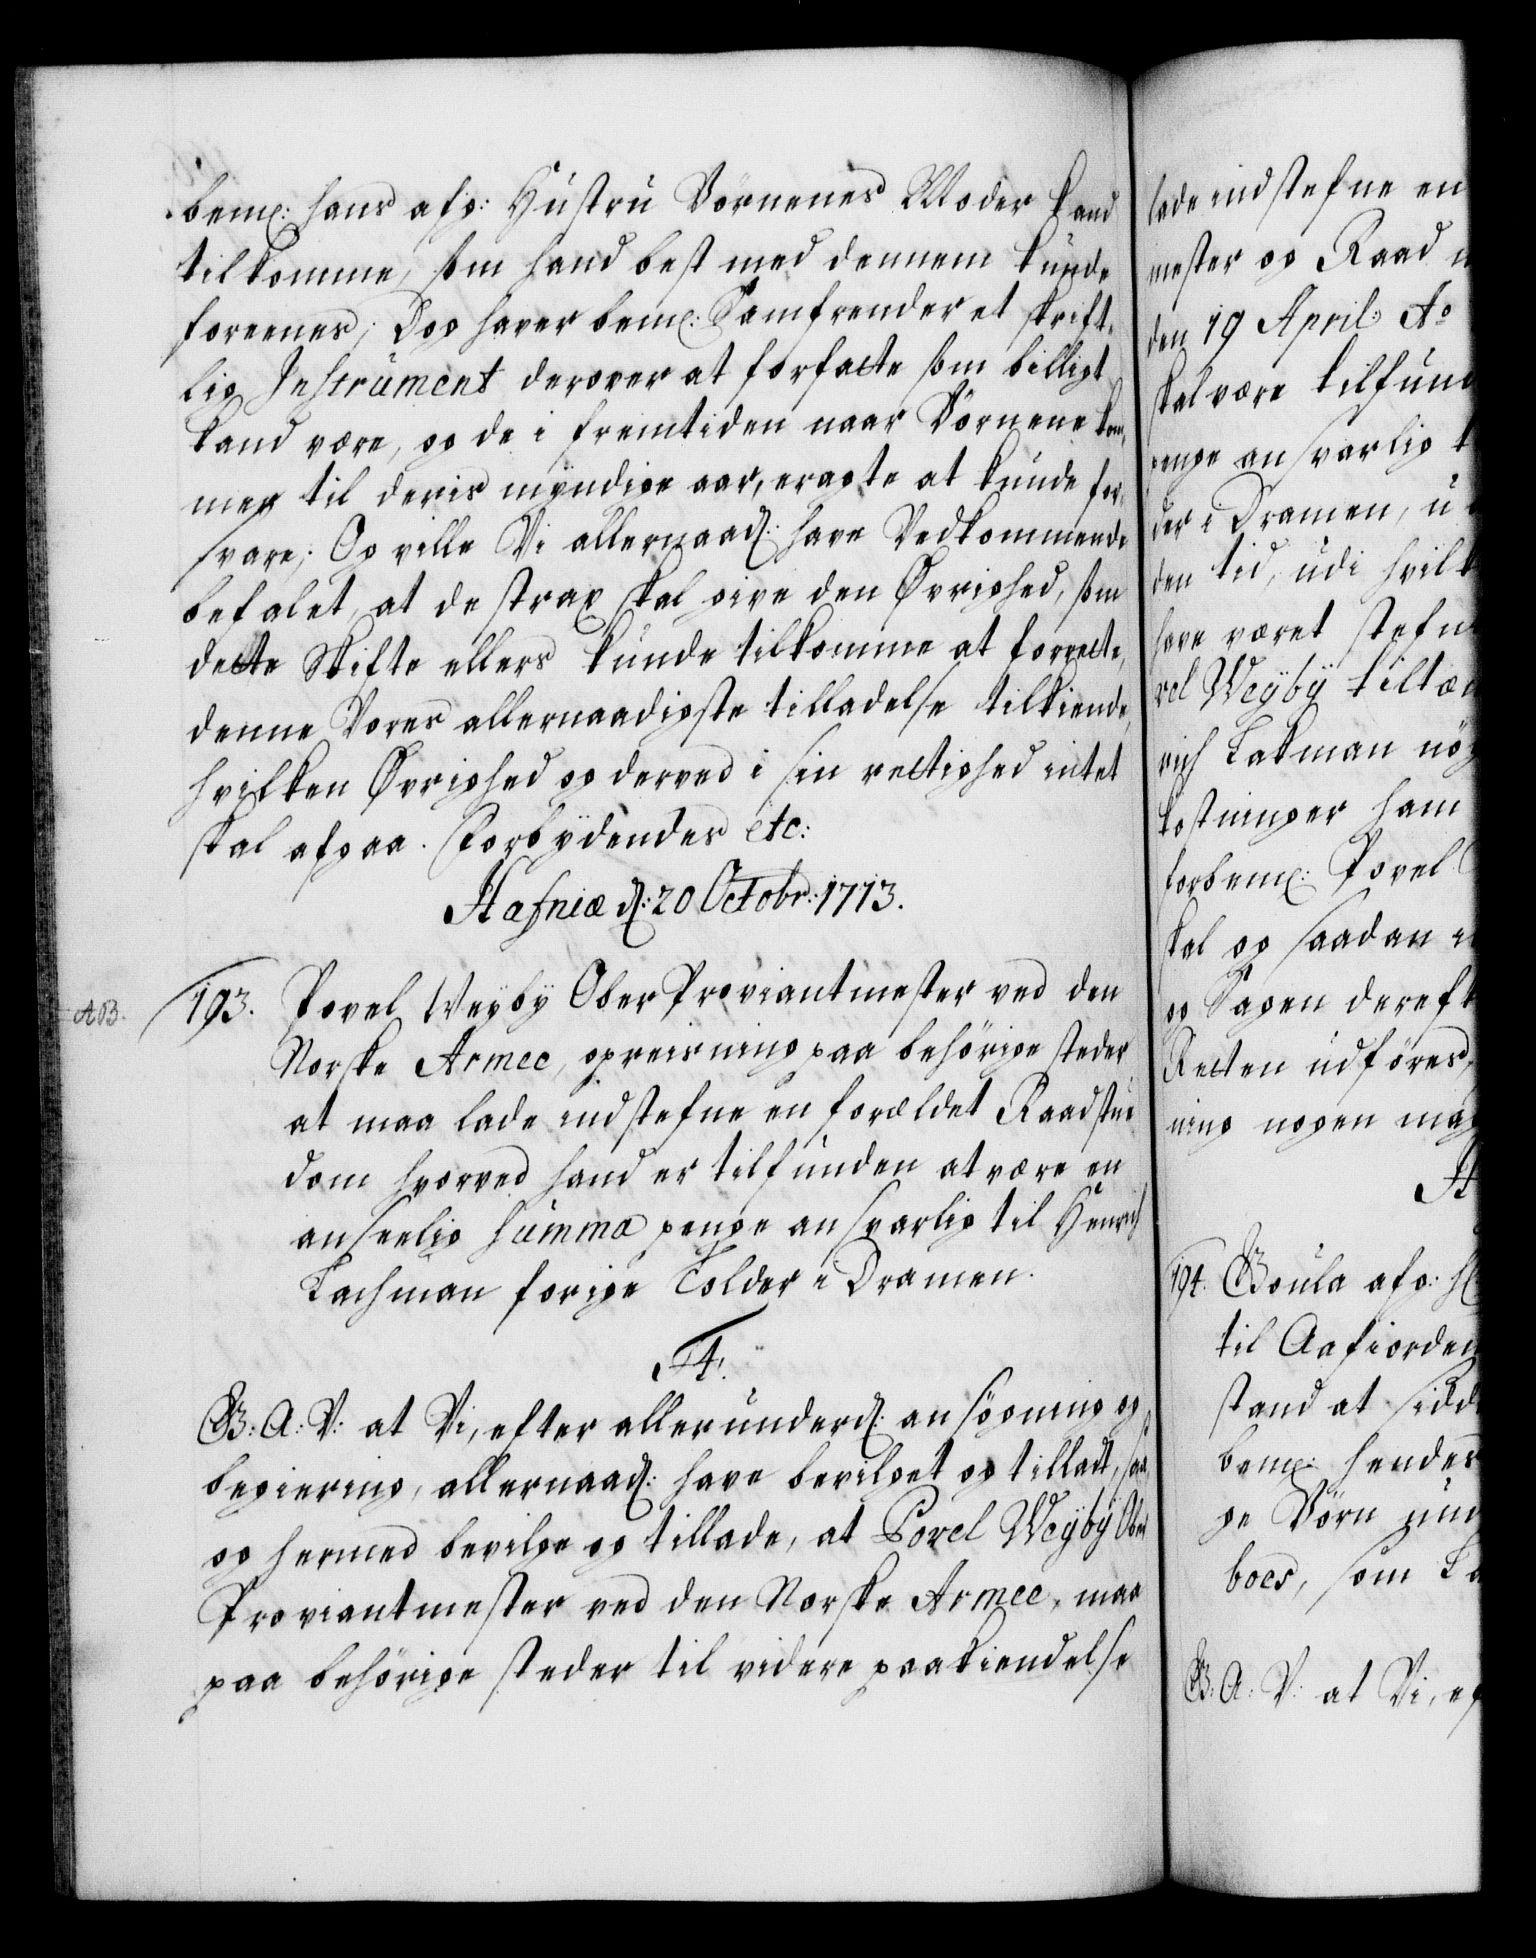 bemt: hans afg: Hustru Börnenes Moder kand
tilkomme, som hand best med dennem kunde
foreenes; Dog haver bemt: Samfrender et skrift-
lig Instrument derover at forfatte som billigt
kand være, og de i fremtiden naar Börnene kom-
mer til deris myndige aar, eragte at kunde for-
svare; Og ville Vi allernaad: have Vedkommende
befalet, at de strax skal give den Øvrighed, som
dette Skifte ellers kunde tilkomme at forrette,
denne Vores allernaadigste tilladelse tilkiende,
hvilken Øvrighed og derved i sin rettighed intet
skal afgaa. Forbydendes etc:
Hafniæ d: 20 Octobr: 1713.
NB.
193. Povel Weyby Ober Proviantmester ved den
Norske Armee, opreisning paa behörige steder
at maa lade indstefne en forældet Raadstue
dom hvorved hand er tilfunden at være en
anseelig summa penge ansvarlig til Henrich
Lachman forige Tolder i Dramen.
F4.
G: A: V: at Vi, efter allerunderd: ansögning og
begiering, allernaad: have bevilget og tilladt, saa
og hermed bevilge og tillade, at Povel Weyby Ober
Proviantmester ved den Norske Armee, maa
paa behörige steder til videre paakiendelse
lade indstefne en
mester og Raad
den 19 April: Ao
skal være tilfun
penge ansvarlig
der i Dramen, u
den tid, udi hvilk
have været stefn
vel Weyby tiltæn
rich Lakman nög
kostninger ham
forbemt: Povel
skal og saadan
og Sagen dereft
Retten udföres,
ning nogen maa
H
194. Boula afg: H
til Aafiorden
stand at sidd
bemt: hendes
ge Börn um
boes, som La
G: A: V: at Vi, ef